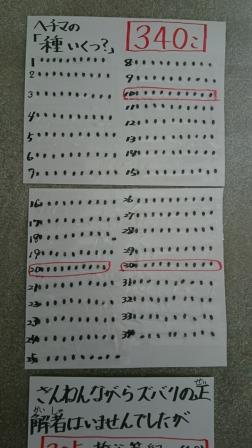 ヘチマの
「種いくつ?」
340こ
1
2
3
4
5
6
7
8
9
10
11
12
13
14
15
16
17
18
19
20
21
22
23
24
25
26
27
28
29
30
31
32
33
34
ざんねんながらズバリの正
せい
解者はいませんでしたが
かいしゃ